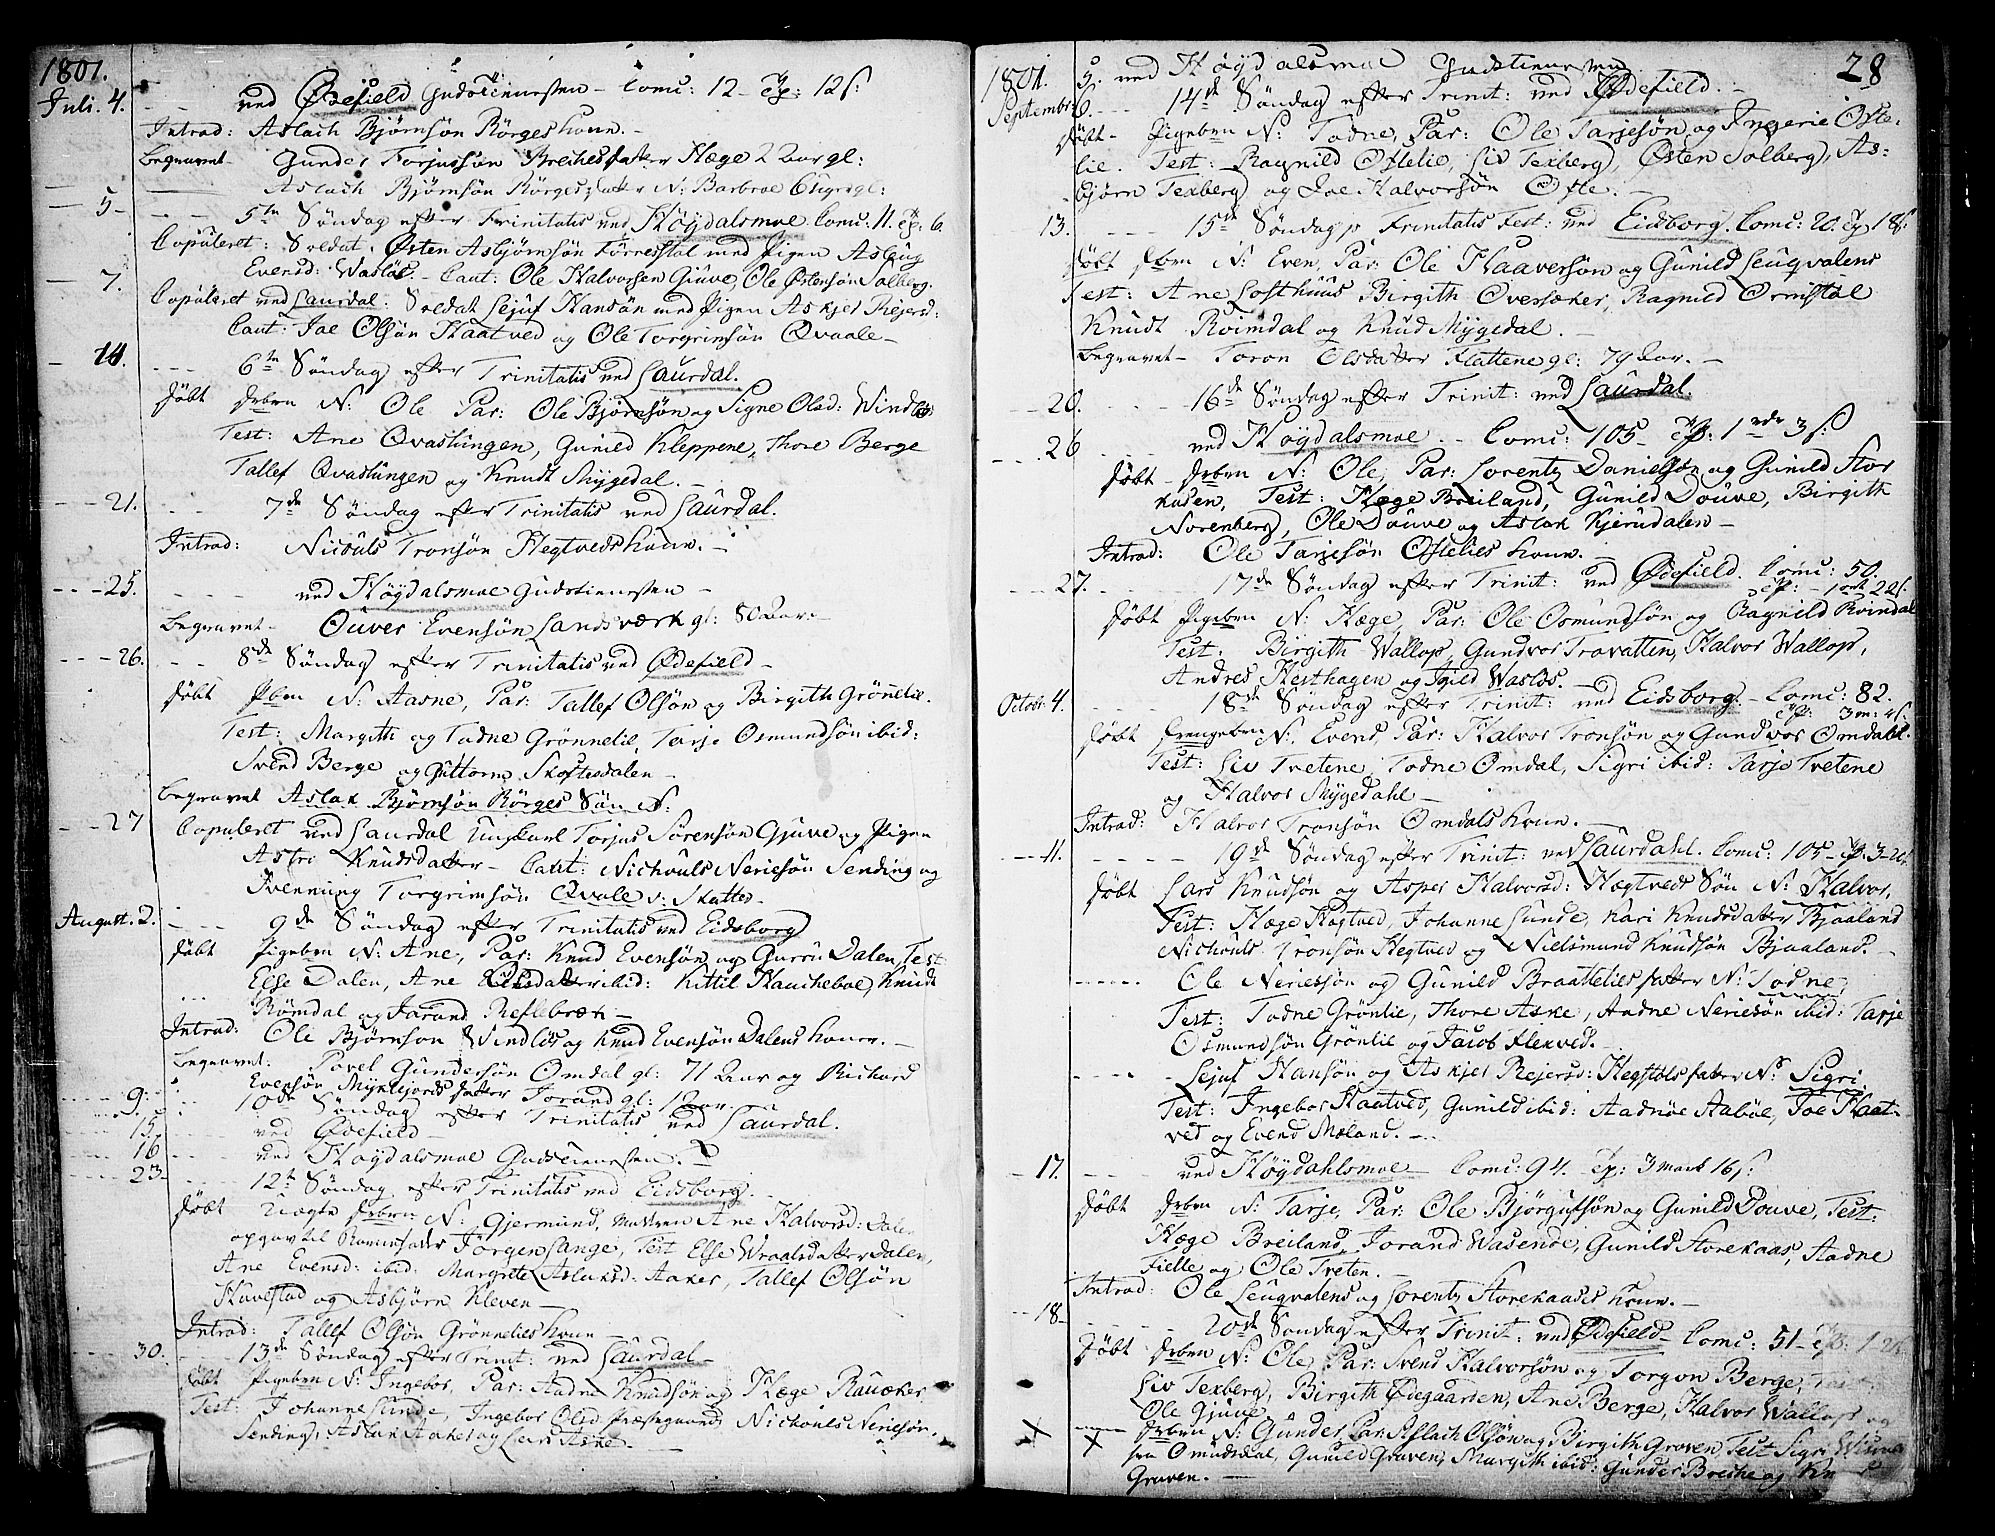 1801.
Juli. 4. ved Ødefield Gudstienesten - Comu: 12 - Tp: 12 s.
Introd: Aslach Bjørnsøn Rörges kone. -
begravet - Gunder Torjussøn Breches datter Hæge 2 Aar gl:
Aslach Bjørnsøn Rörges datter N: Barbroe
- 5 - 5te Søndag efter Trinitatis ved Høydalsmoe Comu: 11. Tp: 6.
Copuleret: Soldat Østen Asbjørnsøn Förrestal med Pigen Aslaug
Evensd: Waslös - Caut: Ole Halvorsen Giuve, Ole Østensøn Solberg.
- 7. Copuleret ved Laurdal: Soldat Lejuf Hansøn med Pigen Askjer Rejersd:
Caut: Joe Olsøn Haatved og Ole Torgrimsøn Qvaale -
- 14. 6te Søndag efter Trinitatis ved Laurdal.
döbt Drbrn N: Ole Par: Ole Bjørnsøn og Signe Olsd: Windlös
Test: Ane Qvastungen, Gunild Kleppene, Thore Berge
Tallef Qvastungen og Knudt Mygedal. -
- 21. 7de Søndag efter Trinitatis ved Laurdal.
Introd: Nicouls Tronsøn Hegtveds kone. -
- 25. ved Høydalsmoe Gudstienesten -
begravet - Ouver Evensøn Landsværk gl: 80 Aar -
- 26. 8de Søndag efter Trinitatis ved Ødefield -
döbt Pbrn N: Aasne, Par: Tallef Olsøn og Birgith Grönnelie.
Test: Margith og Todne Grönnelie, Tarje Osmundsøn ibid:
Svend Berge og Guttorm Skoftedalen -
begravet Aslak Bjørnsøn Rörges Søn N:
- 27 Copuleret ved Laurdal Ungkarl Torjus Sörensøn Gjuve og Pigen
Astri Knudsdatter - Caut: Nichouls Neriesøn Sending og
Svenning Torgrimsøn Qvale v: Skatter -
August. 2. 9de Søndag efter Trinitatis ved Eidsborg
döbt Pigebrn N: Ane, Par: Knud Evensøn og Guroe Dalen, Test
Else Dalen, Ane Olsdatter ibid: Kittil Haucheboe, Knudt
Römdal og Jarand Reflebræk -
Introd: Ole Bjørnson Windlös og Knud Evensøn Dalens koner. -
begravet: Povel Gundersøn Omdal gl: 71 Aar og Richard
Evensøn Myklejords datter Jorand gl: 1 Aar. -
- 9: 10de Søndag efter Trinitatis ved Laurdal.
- 15. ved Ødefield -
- 16 ved Høydalsmoe Gudstienesten. -
- 23 - 12te Søndag efter Trinitatis ved Eidsborg
döbt Uægte Drbrn N: Gjermund, Moderen Ane Halvorsd: Dalen
opgav til Barnefader Jörgen Lange, Test Else Wraalsdatter Dalen,
Ane Evensd: ibid: Margrete Aslaksd: Aaker, Tallef Olsøn
Huvestad og Asbjørn Kleven -
Introd: Tallef Olsøn Grönnelies kone -
- 30. 13de Søndag efter Trinit: ved Laurdal -
döbt Pigebrn N: Ingebor, Par: Aadne Knudsøn og Hæge Rauaker,
Test: Johanne Lunde, Ingebor Olsd Præstegaard, Nichouls Neriesøn
Sending, Aslak Aaker og Lars Aske. -
28
1801. 5. ved Høydalsmoe Gudstienesten
Septembr. 6. 14de Søndag efter Trinit: ved Ødefield. -
döbt - Pigebrn N: Todne, Par: Ole Tarjesøn og Ingerie Ofte-
lie. Test: Ragnild Oftelie, Liv Texberg, Østen Solberg, As-
bjørn Texberg og Joe Halvorsøn Ofte. -
13. 15de Søndag p Trinitatis Fest: ved Eidborg. Comu: 20. Tp 18 s:
döbt Drbrn N: Even, Par: Ole Haaversøn og Gunild Leuqvalens
Test: Ane Losthuus Birgith Oversaker, Ragnild Ornstal
Knudt Roimdal og Knud Mygedal. -
Begravet - Toron Olsdatter Flattene gl: 79 Aar. -
- 20. 16de Søndag efter Trinit: ved Laurdal.
- 26 ved Høydalsmoe - Comu: 105 - Tp: 1 rdr 3 s:
döbt - Drbrn N: Ole, Par: Lorentz Danielsøn og Gunild Stor
kasen, Test: Hæge Breiland, Gunild Douve, Birgith
Norenberg, Ole Douve og Aslak Kjerudalen -
Introd: Ole Tarjesøn Oftelies kone. -
- 27. 17de Søndag efter Trinit: ved Ødefield. Comu: 50.
Tp: - 1 ort 22 s.
döbt Pigebrn N: Hæge, Par: Ole Osmundsøn og Ragnild Roindal
Test: Birgith Wallop, Gundvor Trovatten, Halvor Wallop,
Andres Hesthagen og Tgild Waslös. -
Octobr: 4. 18de Søndag efter Trinit: ved Eidsborg - Comu: 82.
Tp: 3 m: 4 s.
döbt Drengebrn N: Evend, Par: Halvor Tronsøn og Gundvor Omdahl.
Test: Liv Tvetene, Todne Omdal, Sigri ibid: Tarje Tvetene
og Halvor Mygedahl -
Introd: Halvor Tronsøn Omdals kone. -
- 11. 19de Søndag efter Trinit: ved Laurdahl. Comu: 105 - Tp: 3 - 20.
döbt Lars Knudsøn og Asper Halvorsd: Hegtveds Søn N: Halvor,
Test: Hæge Hagtved, Johanne Lunde, Kari Knudsdatter Bjaaland
Nichouls Tronsøn Hegtved og Nielsmund Knudsøn Bjaaland. -
Ole Neriessøn og Gunild Braattelies datter N: Todne,
Test: Todne Grönlie, Thore Aske, Aadne Neriesøn ibid: Tarje
Osmundsøn Grönlie og Jacob Flekved. -
Lejuf Hansøn og Askjer Rejersd: Hegstols datter N: Sigri
Test: Ingebor Haatved, Gunild ibid: Aadnöe Aaböe, Joe Haat-
ved og Evend Moland. -
- 17. ved Høydahlsmoe - Comu: 94. Tp: 3 mark 16 s:
döbt Drbrn N: Tarje, Par: Ole Bjørgufsøn og Gunild Douve, Test:
Hæge Breiland, Jorand Wasende, Gunild Storekaas, Aadne
Fielle og Ole Tveten. -
Introd: Ole Leuqvalens og Lorentz Storekaases kone. -
- 18 - 20de Søndag efter Trinit: ved Ødefield - Comu: 51 - Tp: 1
döbt Drbrn N: Ole, Par: Svend Halvorsøn og Torgon Berge, Test:
Liv Texberg, Birgith Ødegaarden, Ane Berge, Halvor Wallop og
Ole Gjuve.
X Drbrn N: Gunder, Par: Aslach Olsøn og Birgith Groven, Test Sigri
X fra Omundsdal, Gunild Groven, Margith ibid: Gunder Breche og
Groven. -